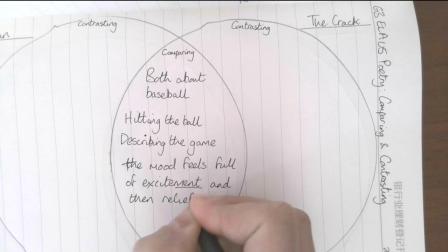 Contrasting
Contrasting
The Crack
Comparing
Both about
baseball
Hitting the ball
Describing the game
the mood feels full
of excitement and
then relief
G3 ELA U5 Poetry: Comparing & Contrasting